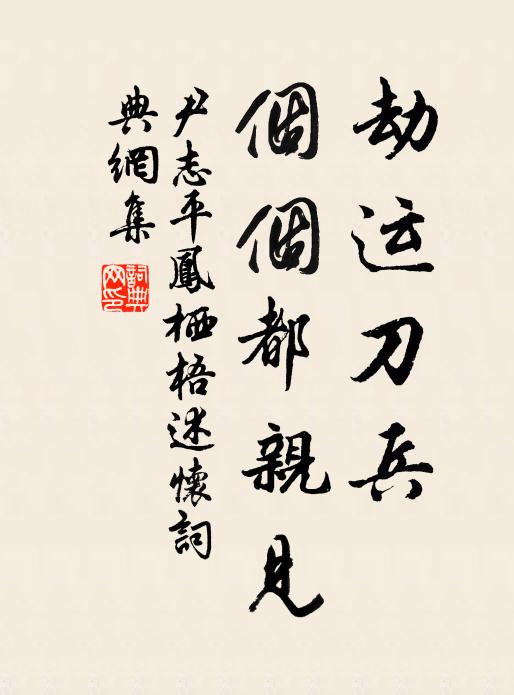 劫运刀兵
個個都親見
尹志平鳳栖梧述懷詞
典網集
詞典網印